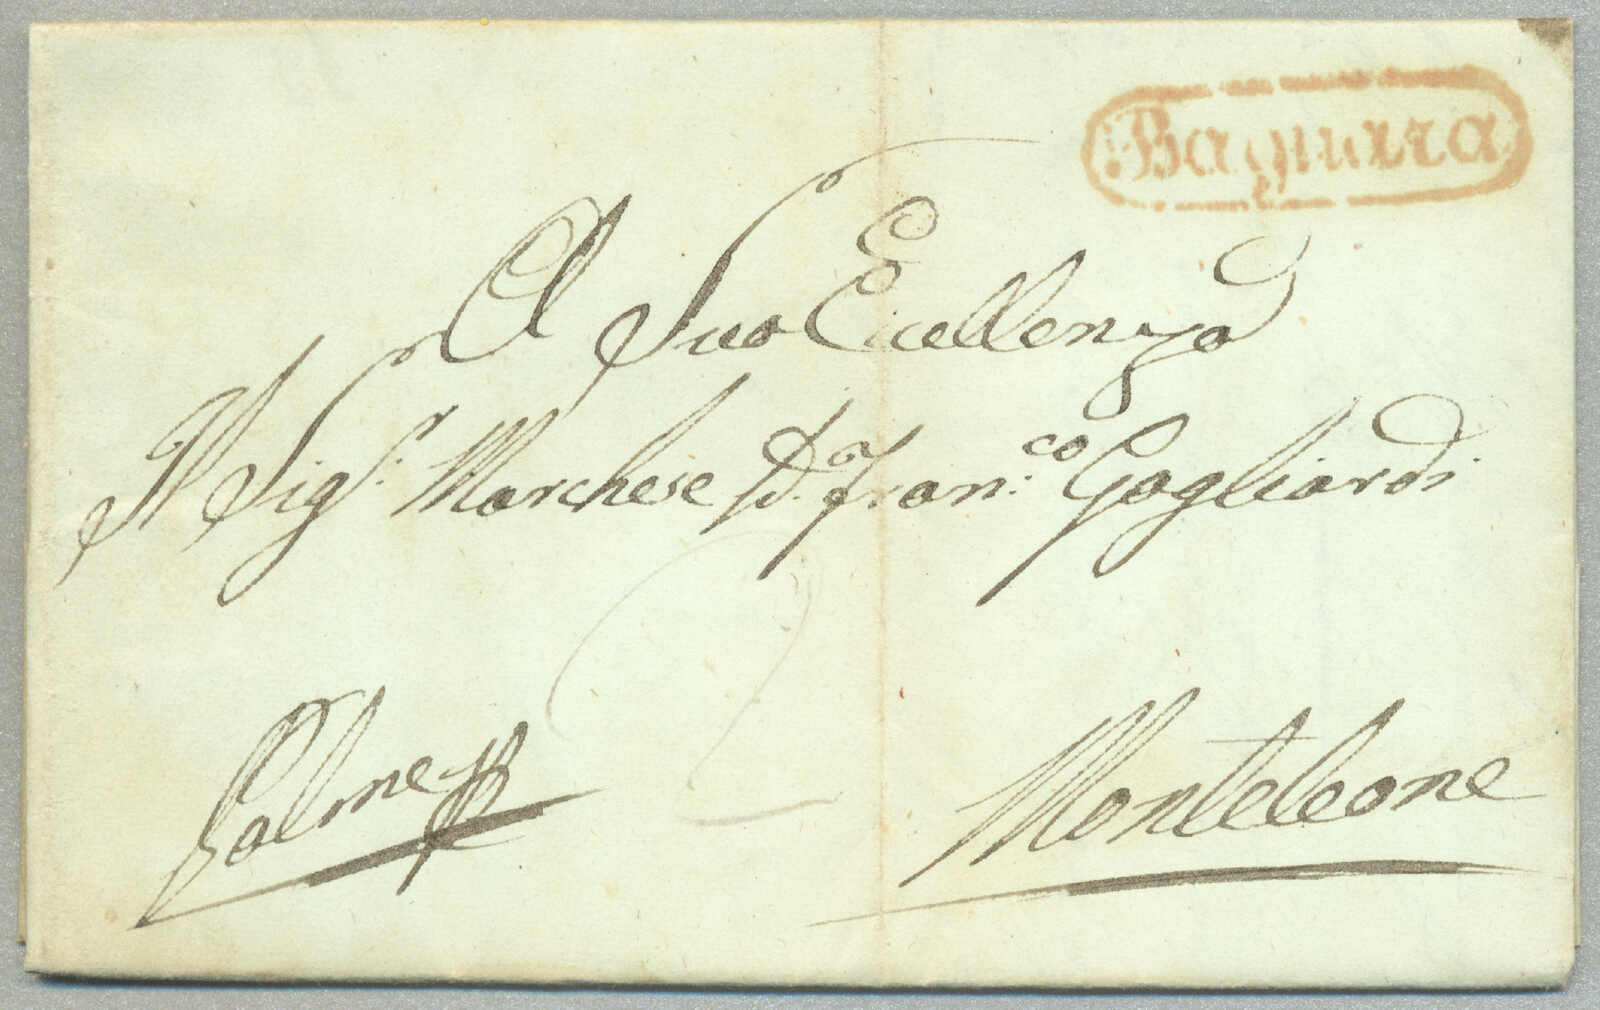 Bagnara
A Sua Eccellenza
Il Sig.r Marchese D.n Fran.co Gagliardi
Palme
Monteleone